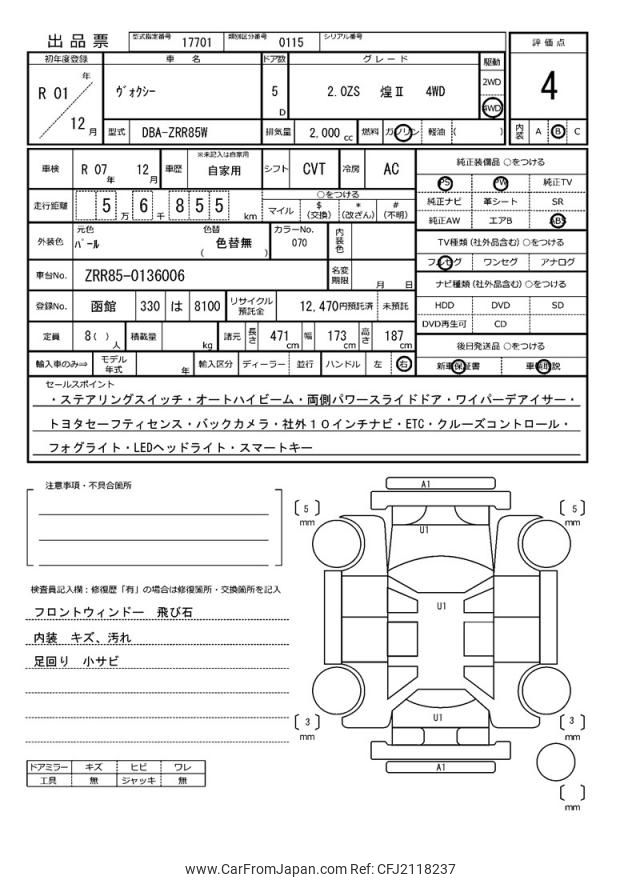 出品票 型式指定番号 17701 類別区分番号 0115 シリアル番号
評価点
4
内装 A B C
初年度登録 車名 ドア数 グレード 駆動
R 01 年 12 月 ヴォクシー 5 D 2.0ZS 煌Ⅱ 4WD 2WD 4WD
型式 DBA-ZRR85W 排気量 2,000 cc 燃料 ガソリン 軽油 ( )
車検 R 07 年 12 月 車歴 ※未記入は自家用 自家用 シフト CVT 冷房 AC
走行距離 5 万 6 千 8 5 5 km ○をつける
マイル $ (交換) * (改ざん) # (不明)
外装色 元色 パール 色替 ( 色替無 ) カラーNo. 070 内装色
車台No. ZRR85-0136006 名変期限 月 日
登録No. 函館 330 は 8100 リサイクル預託金 12,470円預託済 未預託
定員 8( ) 人 積載量 kg 諸元 長さ 471 cm 幅 173 cm 高さ 187 cm
輸入車のみ⇒ モデル年式 年 輸入区分 ディーラー 並行 ハンドル 左 右
純正装備品 ○をつける
PS PW 純正TV
純正ナビ 革シート SR
純正AW エアB ABS
TV種類 (社外品含む) ○をつける
フルセグ ワンセグ アナログ
ナビ種類 (社外品含む) ○をつける
HDD DVD SD
DVD再生可 CD
後日発送品 ○をつける
新車保証書 車輌取説
セールスポイント
・ステアリングスイッチ・オートハイビーム・両側パワースライドドア・ワイパーデアイサー・
トヨタセーフティセンス・バックカメラ・社外１０インチナビ・ETC・クルーズコントロール・
フォグライト・LEDヘッドライト・スマートキー
注意事項・不具合箇所
検査員記入欄：修復歴「有」の場合は修復箇所・交換箇所を記入
フロントウィンドー 飛び石
内装 キズ、汚れ
足回り 小サビ
ドアミラー キズ ヒビ ワレ
工具 無 ジャッキ 無
A1
5 mm
5 mm
U1
U1
U1
3 mm
3 mm
A1
mm
www.CarFromJapan.com Ref: CFJ2118237